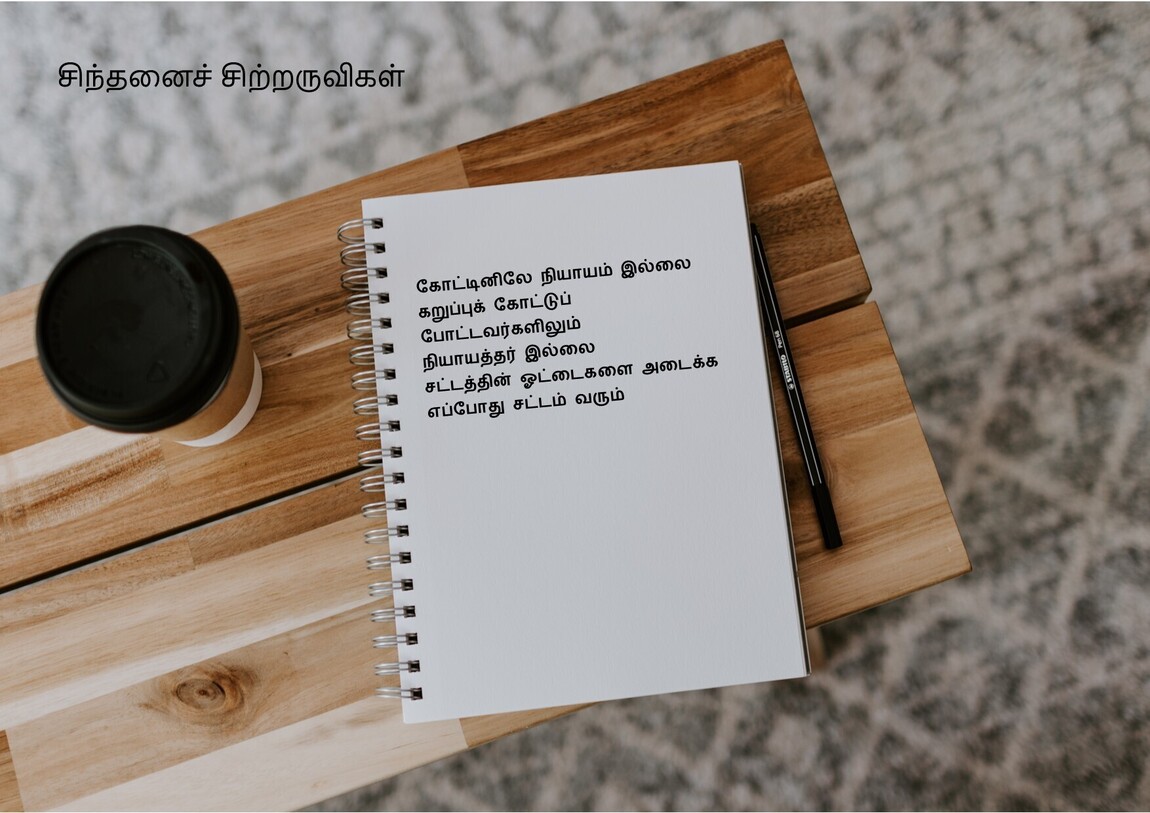 சிந்தனைச் சிற்றருவிகள்
கோட்டினிலே நியாயம் இல்லை
கறுப்புக் கோட்டுப்
போட்டவர்களிலும்
நியாயத்தர் இல்லை
சட்டத்தின் ஓட்டைகளை அடைக்க
எப்போது சட்டம் வரும்
STABILO